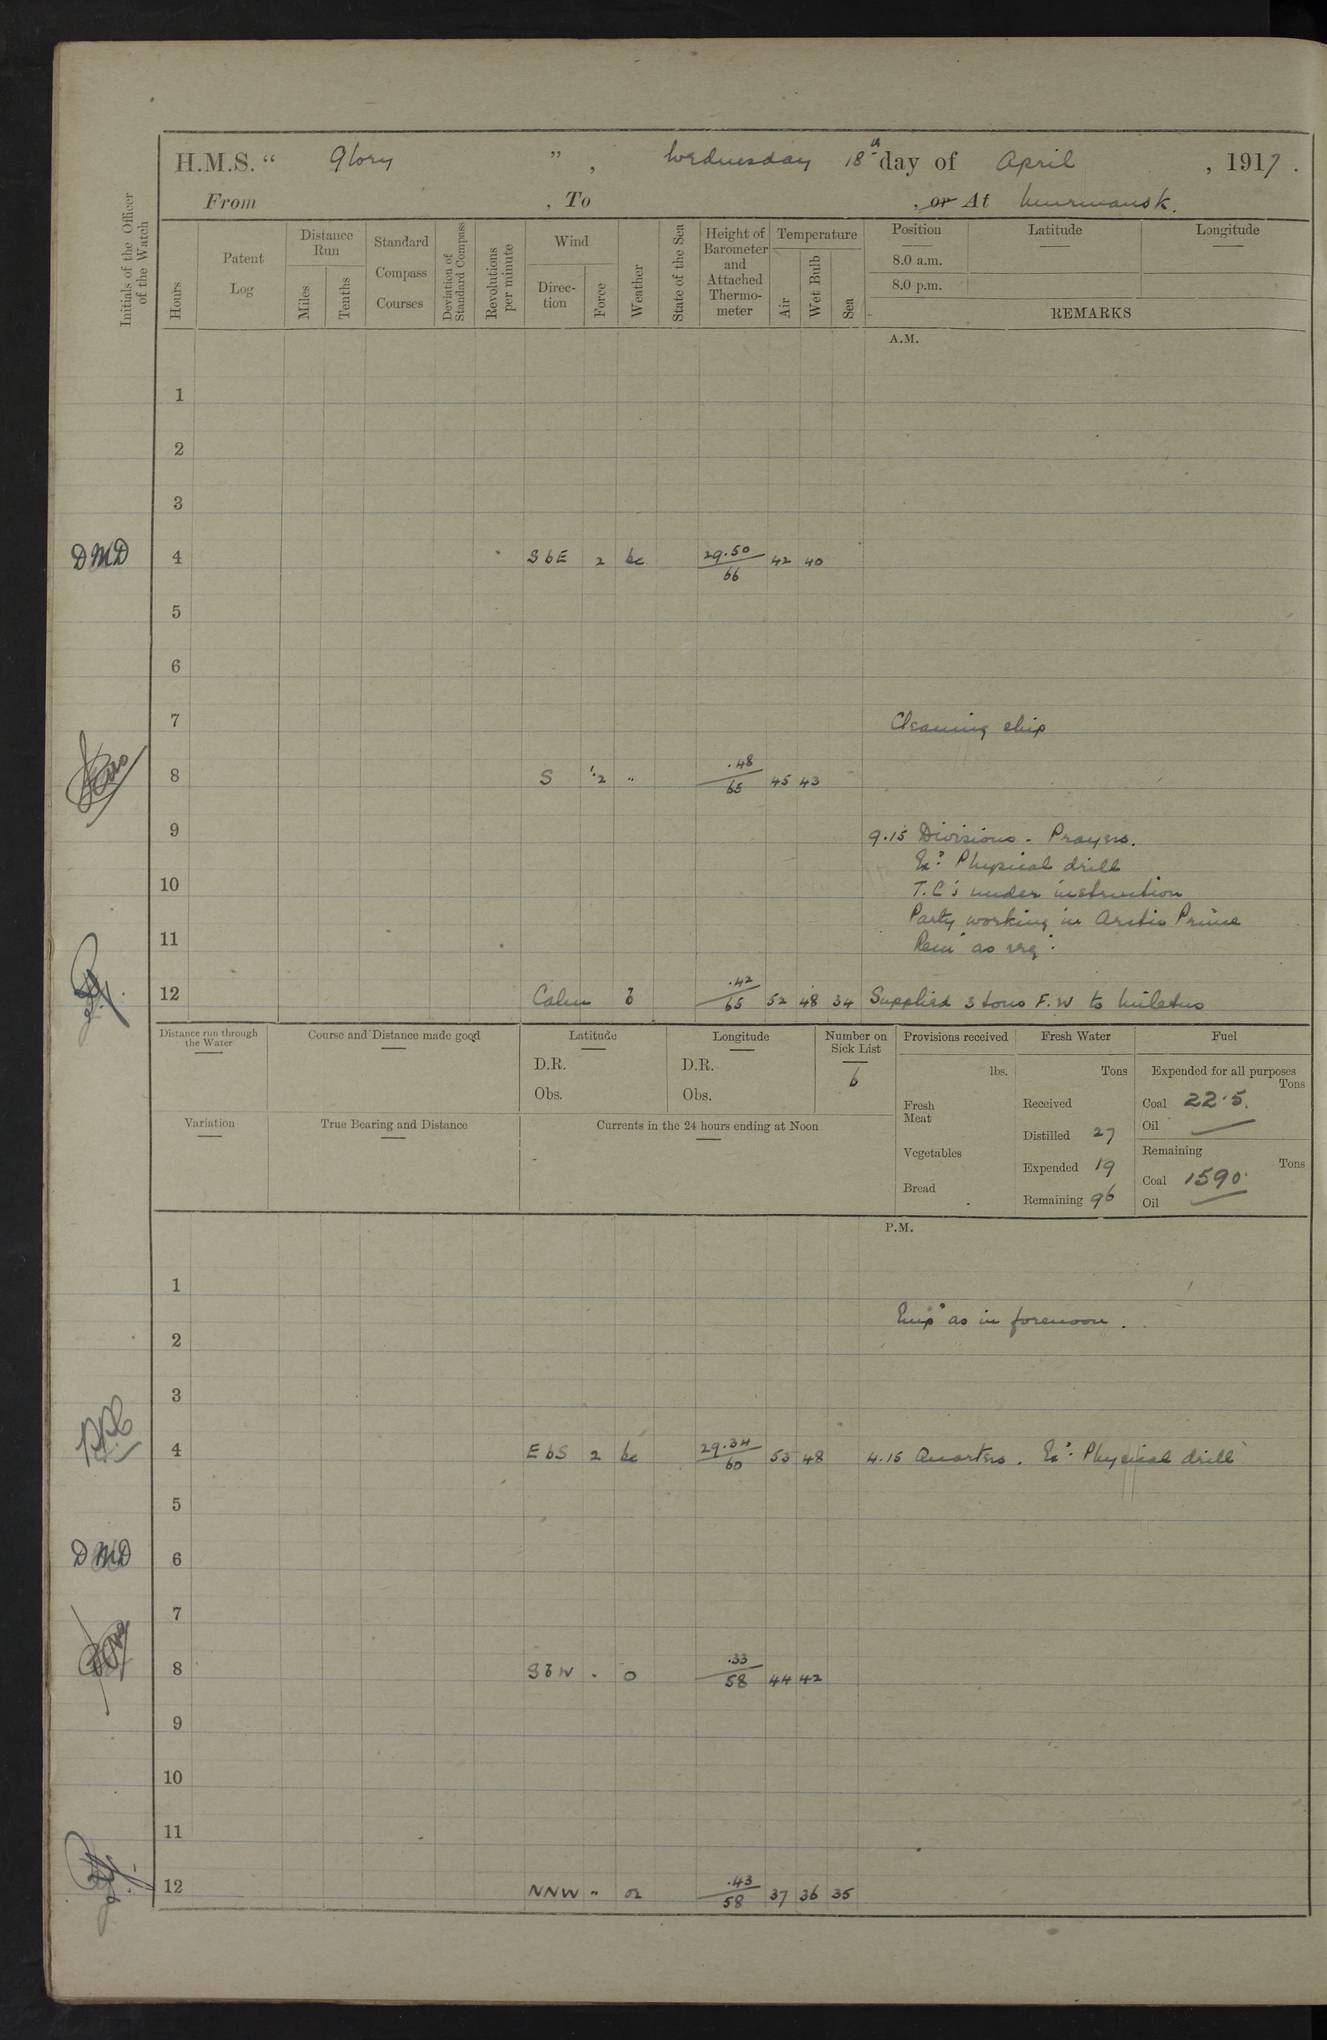 H.M.S. “ Glory ” , Wednesday 18th day of April , 1917 .
From , To , or At Murmansk.
Initials of the Officer of the Watch
Hours
Patent Log
Distance Run
Miles
Tenths
Standard Compass Courses
Deviation of Standard Compass
Revolutions per minute
Wind
Direction
Force
Weather
State of the Sea
Height of Barometer and Attached Thermometer
Temperature
Air
Wet Bulb
Sea
Position
8.0 a.m.
8.0 p.m.
Latitude
Longitude
REMARKS
A.M.
1
2
3
DMD 4 SbE 2 bc 29.50/66 42 40
5
6
7 Cleaning ship
8 S 1.2 " .48/65 45 43
9 9.15 Divisions - Prayers.
Exd Physical drill
10 T.C's under instruction
Party working in Arctic Prince
11 Remr as req:
12 Calm b .42/65 52 48 34 Supplied 3 tons F.W to Miletus
Distance run through the Water
Course and Distance made good
Latitude
D.R.
Obs.
Longitude
D.R.
Obs.
Number on Sick List
6
Provisions received
lbs.
Fresh Meat
Vegetables
Bread
Fresh Water
Tons
Received
Distilled 27
Expended 19
Remaining 96
Fuel
Expended for all purposes
Tons
Coal 22.5.
Oil —
Remaining
Tons
Coal 1590
Oil —
Variation
True Bearing and Distance
Currents in the 24 hours ending at Noon
P.M.
1
Empd as in forenoon .
2
3
4 EbS 2 bc 29.34/60 53 48 4.15 Quarters. Exd Physical drill
5
DMD 6
7
8 SbW . o .33/58 44 42
9
10
11
12 NNW " or .43/58 37 36 35